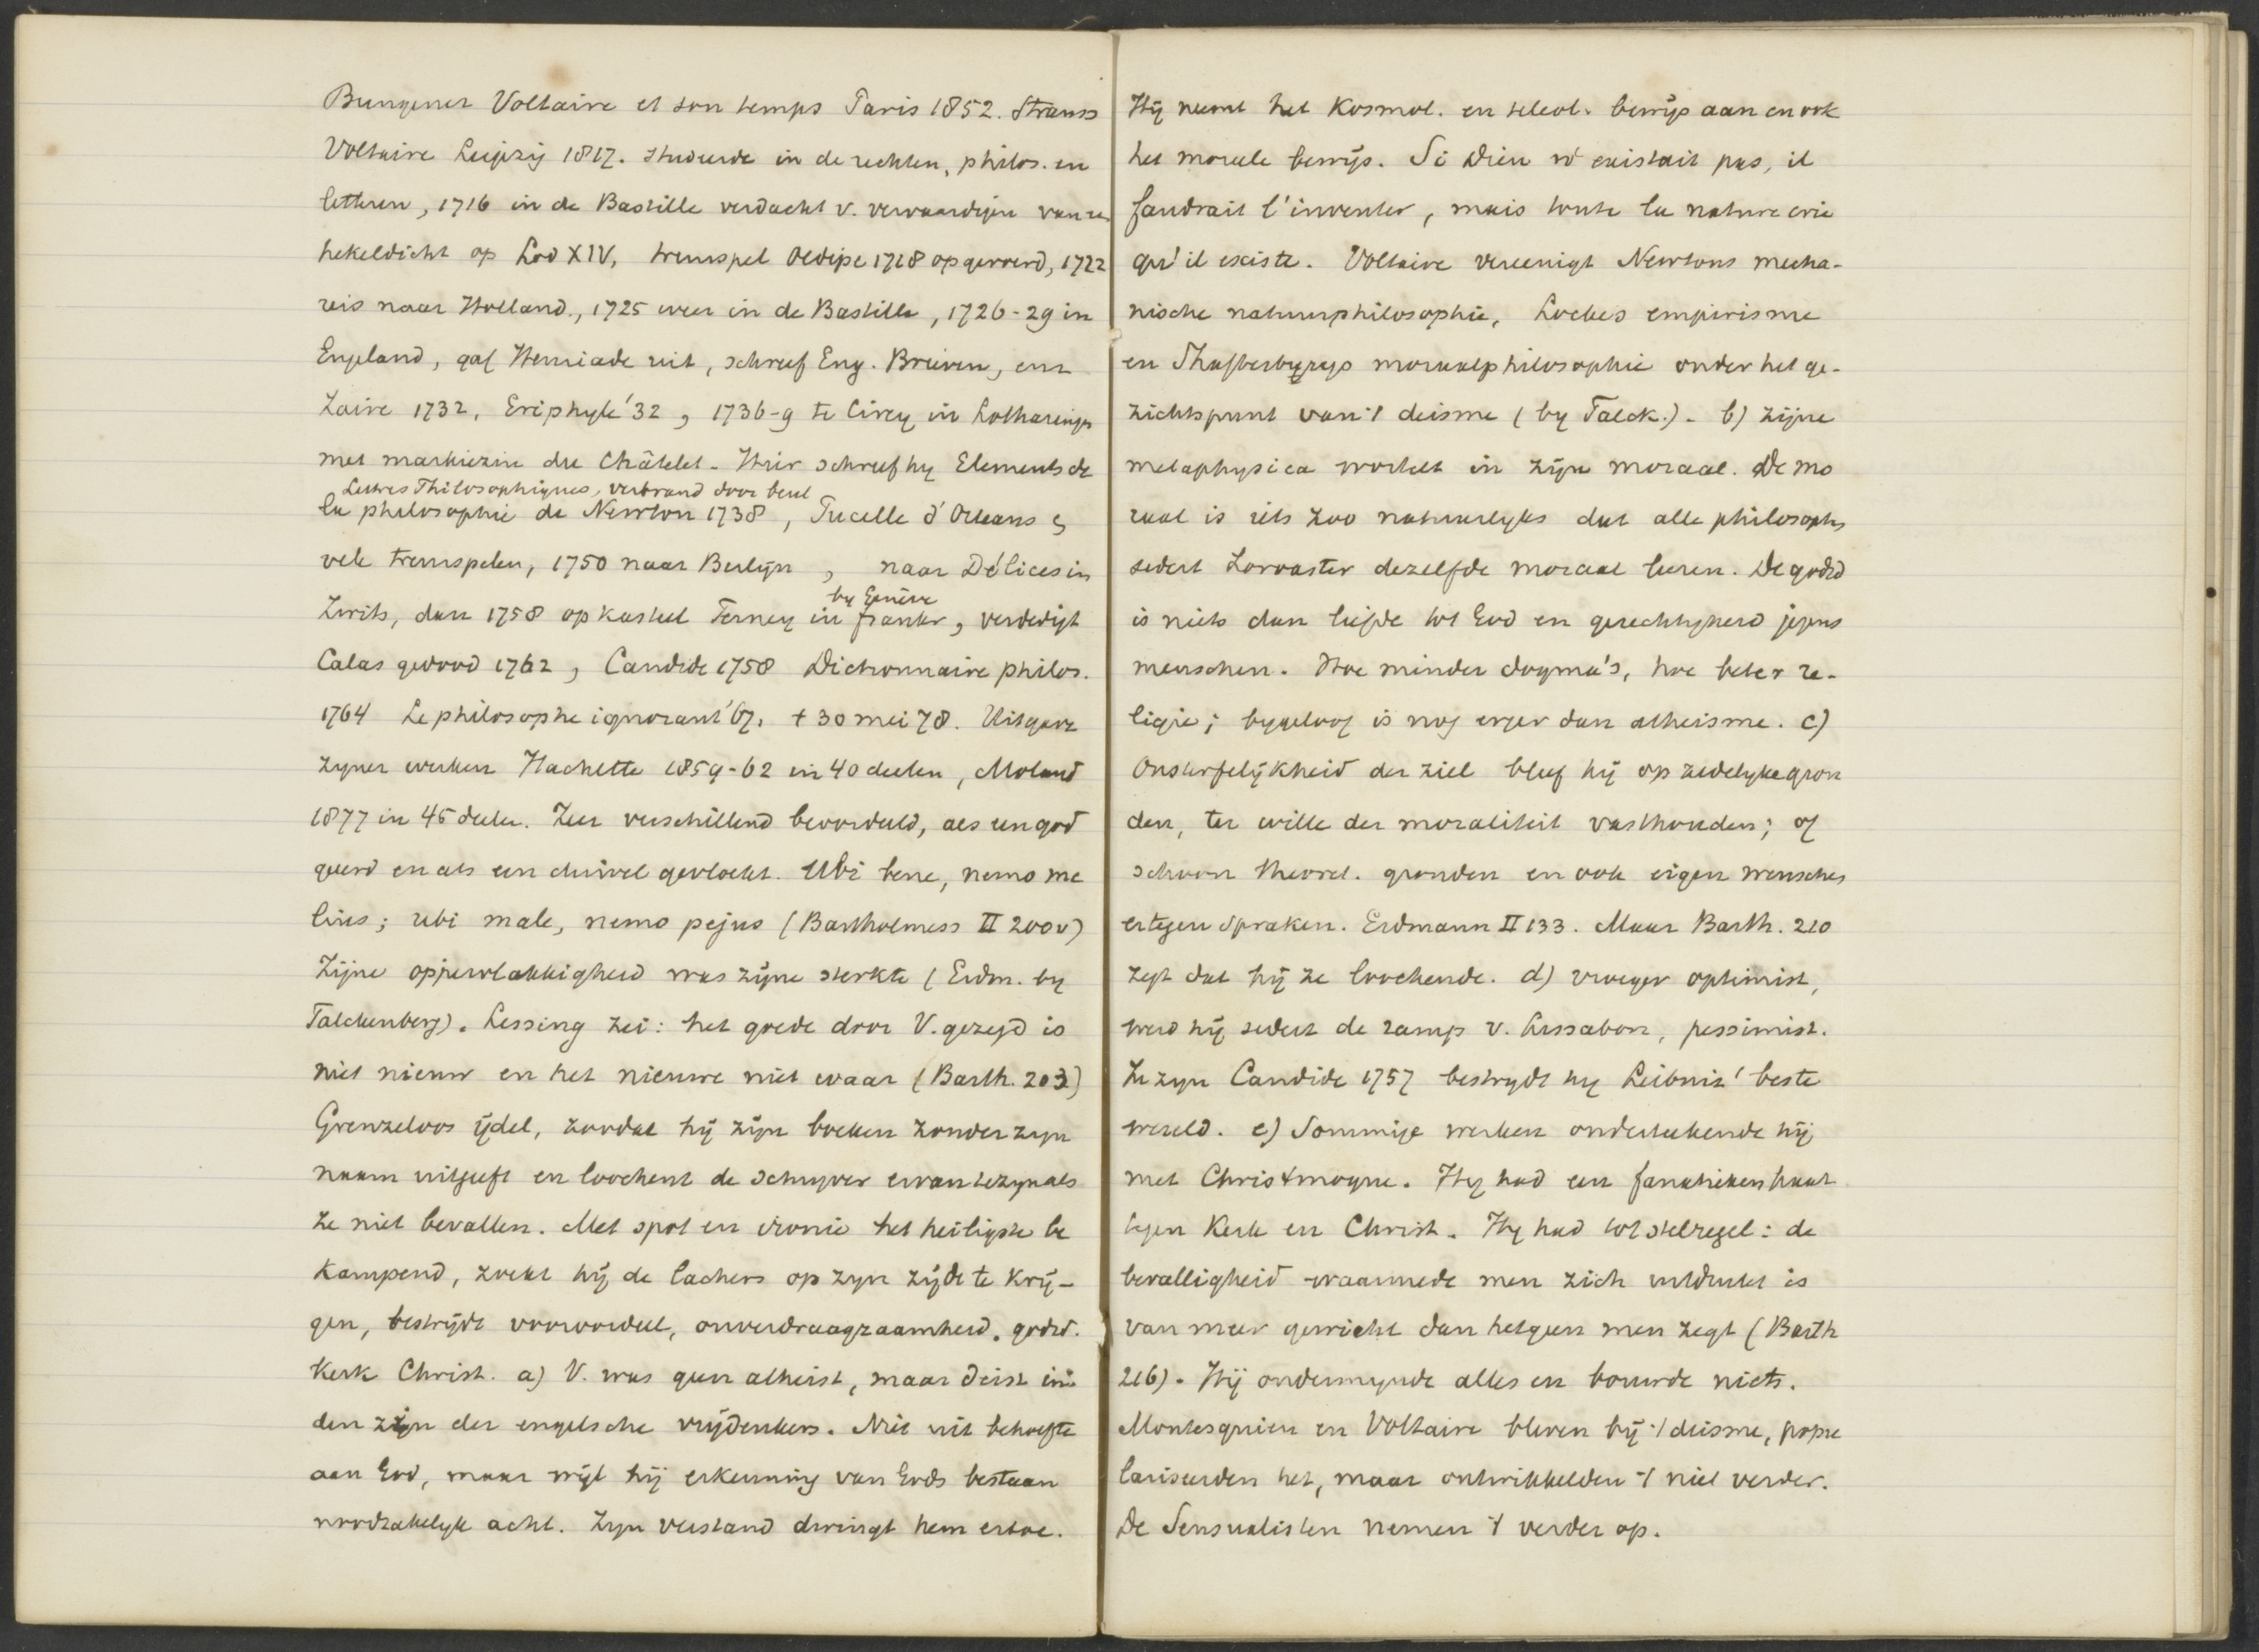 Bungener Voltaire et son temps Paris 1852. Strauss
Voltaire Leipzig 1817. studeerde in de rechten, philos. en
letteren, 1716 in de Bastille verdacht v. vervaardigen van een
hekeldicht op Lod XIV, treurspel Oedipe 1718 opgevoerd, 1722
reis naar Holland, 1725 weer in de Bastille, 1726-29 in
Engeland, gaf Henriade uit, schreef Eng. Brieven, en
Zaire 1732, Eriphyle '32, 1736-9 te Cirey in Lotharingen
met markiezin du Châtelet. Hier schreef hy Elements de
Lettres Philosophiques, verbrand door beul
la philosophie de Newton 1738, Pucelle d'Orleans
vele treurspelen, 1750 naar Berlyn, naar Délices in
by Genève
Zwits, dan 1758 op kasteel Ferney in frankr, verdedigt
Calas gedood 1762, Candide 1758 Dictionnaire philos.
1764 Le philosophe ignorant '67. † 30 mei 78. Uitgave
zyner werken Hachette 1859-62 in 40 deelen, Moland
1877 in 45 deelen. Zeer verschillend beoordeeld, als een god
geeerd en als een duivel gevloekt. Ubi bene, nemo me
lius; ubi male, nemo pejus (Bartholmess II 200v)
Zijne oppervlakkigheid was zijne sterkte (Erdm. by
Falckenberg). Lessing zei: het goede door V. gezegd is
niet nieuw en het nieuwe niet waar (Barth. 203)
Grenzeloos ijdel, zoodat hij zijn boeken zonder zyn
naam uitgeeft en loochent de schryver ervan te zyn als
ze niet bevallen. Met spot en ironie het heiligste be
kampend, zoekt hij de lachers op zyn zijde te krij-
gen, bestrijdt vooroordeel, onverdraagzaamheid. godsd.
Kerk Christ. a) V. was geen atheist, maar deist in
den zijn der engelsche vrijdenkers. Niet uit behoefte
aan God, maar wijl hij erkenning van Gods bestaan
noodzakelyk acht. Zyn verstand dwingt hem ertoe.
Hij neemt het Kosmol. en teleol. bewijs aan en ook
het moreele bewijs. Si Dieu n'existait pas, il
faudrait l'inventer, mais toute la nature crie
qu'il existe. Voltaire vereenigt Newtons mecha-
nische natuurphilosophie, Lockes empirisme
en Shaftesburys moraalphilosophie onder het ge-
zichtspunt van 't deisme (by Falck.). b) zijne
metaphysica wortelt in zijn moraal. De mo
raal is iets zoo natuurlyks dat alle philosophs
sedert Zoroaster dezelfde moraal leeren. De godsd
is niets dan liefde tot God en gerechtigheid jegens
menschen. Hoe minder dogma's, hoe beter re-
ligie; bygeloof is nog erger dan atheisme. c)
Onsterfelijkheid der ziel bleef hij op zedelyke gron
den, ter wille der moraliteit vasthouden; of
schoon theoret. gronden en ook eigen wensches
ertegen spraken. Erdmann II 133. Maar Barth. 210
zegt dat hij ze loochende. d) vroeger optimist,
werd hij sedert de ramp v. Lissabon, pessimist.
In zyn Candide 1757 bestrydt hy Leibniz' beste
wereld. e) Sommige werken onderteekende hij
met Christmoque. Hy had een fanatieken haat
tegen Kerk en Christ. Hy had tot stelregel: de
bevalligheid waarmede men zich uitdrukt is
van meer gewicht dan hetgeen men zegt (Barth
216). Hij ondermynde alles en bouwde niets.
Montesquieu en Voltaire bleven bij 't deisme, popu
lariseerden het, maar ontwikkelden 't niet verder.
De Sensualisten nemen 't verder op.